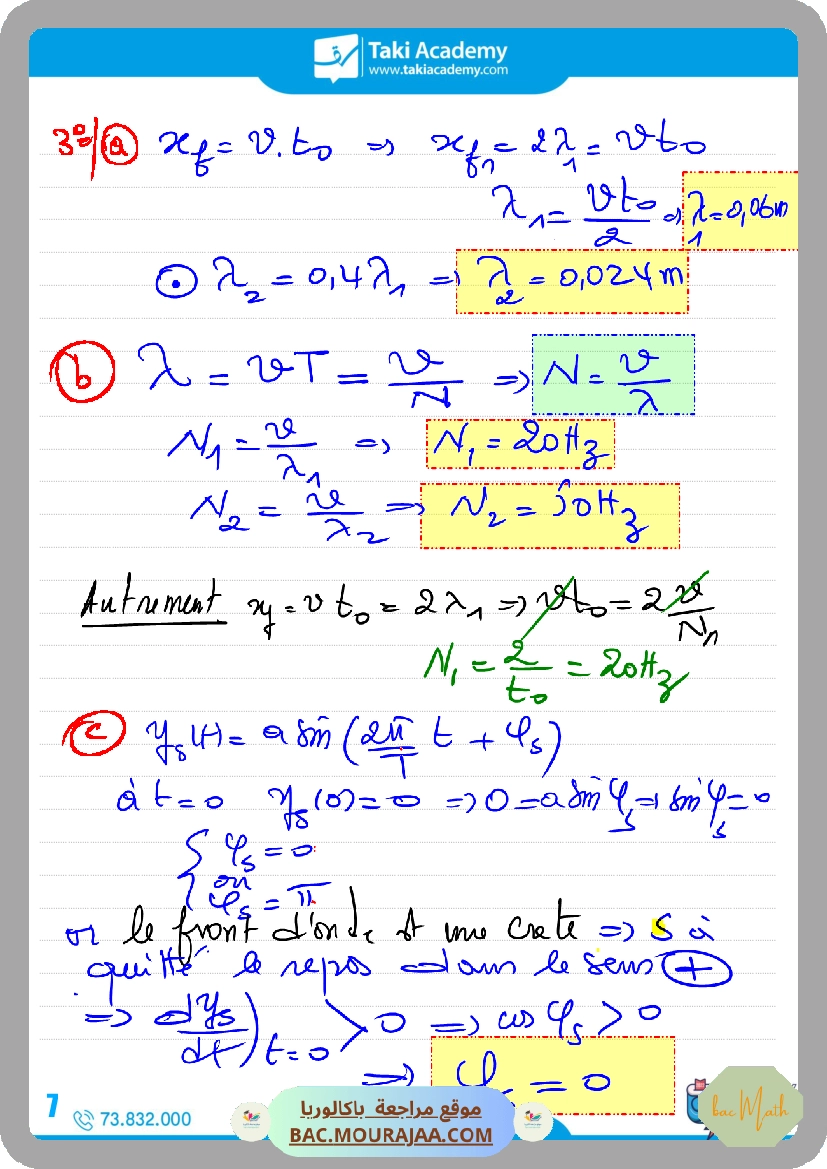 Taki Academy
www.takiacademy.com
3°/ a) x_f = v.t₀ ⇒ x_f₁ = 2λ₁ = vt₀
λ₁ = vt₀/2 ⇒ λ₁ = 0,06m
⊙ λ₂ = 0,4λ₁ ⇒ λ₂ = 0,024m
b) λ = vT = v/N ⇒ N = v/λ
N₁ = v/λ₁ ⇒ N₁ = 20Hz
N₂ = v/λ₂ ⇒ N₂ = 50Hz
Autrement x_f = v t₀ = 2λ₁ ⇒ vt₀ = 2v/N₁
N₁ = 2/t₀ = 20Hz
c) y_s(t) = a sin(2π/T t + φ_s)
à t=0 y_s(0) = 0 ⇒ 0 = a sin φ_s ⇒ sin φ_s = 0
{ φ_s = 0
ou
φ_s = π
or le front d'onde est une crete ⇒ S à
quitté le repos dans le sens +
⇒ dy_s/dt)t=0 > 0 ⇒ cos φ_s > 0
⇒ φ_s = 0
7
73.832.000
موقع مراجعة باكالوريا
BAC.MOURAJAA.COM
bac Math